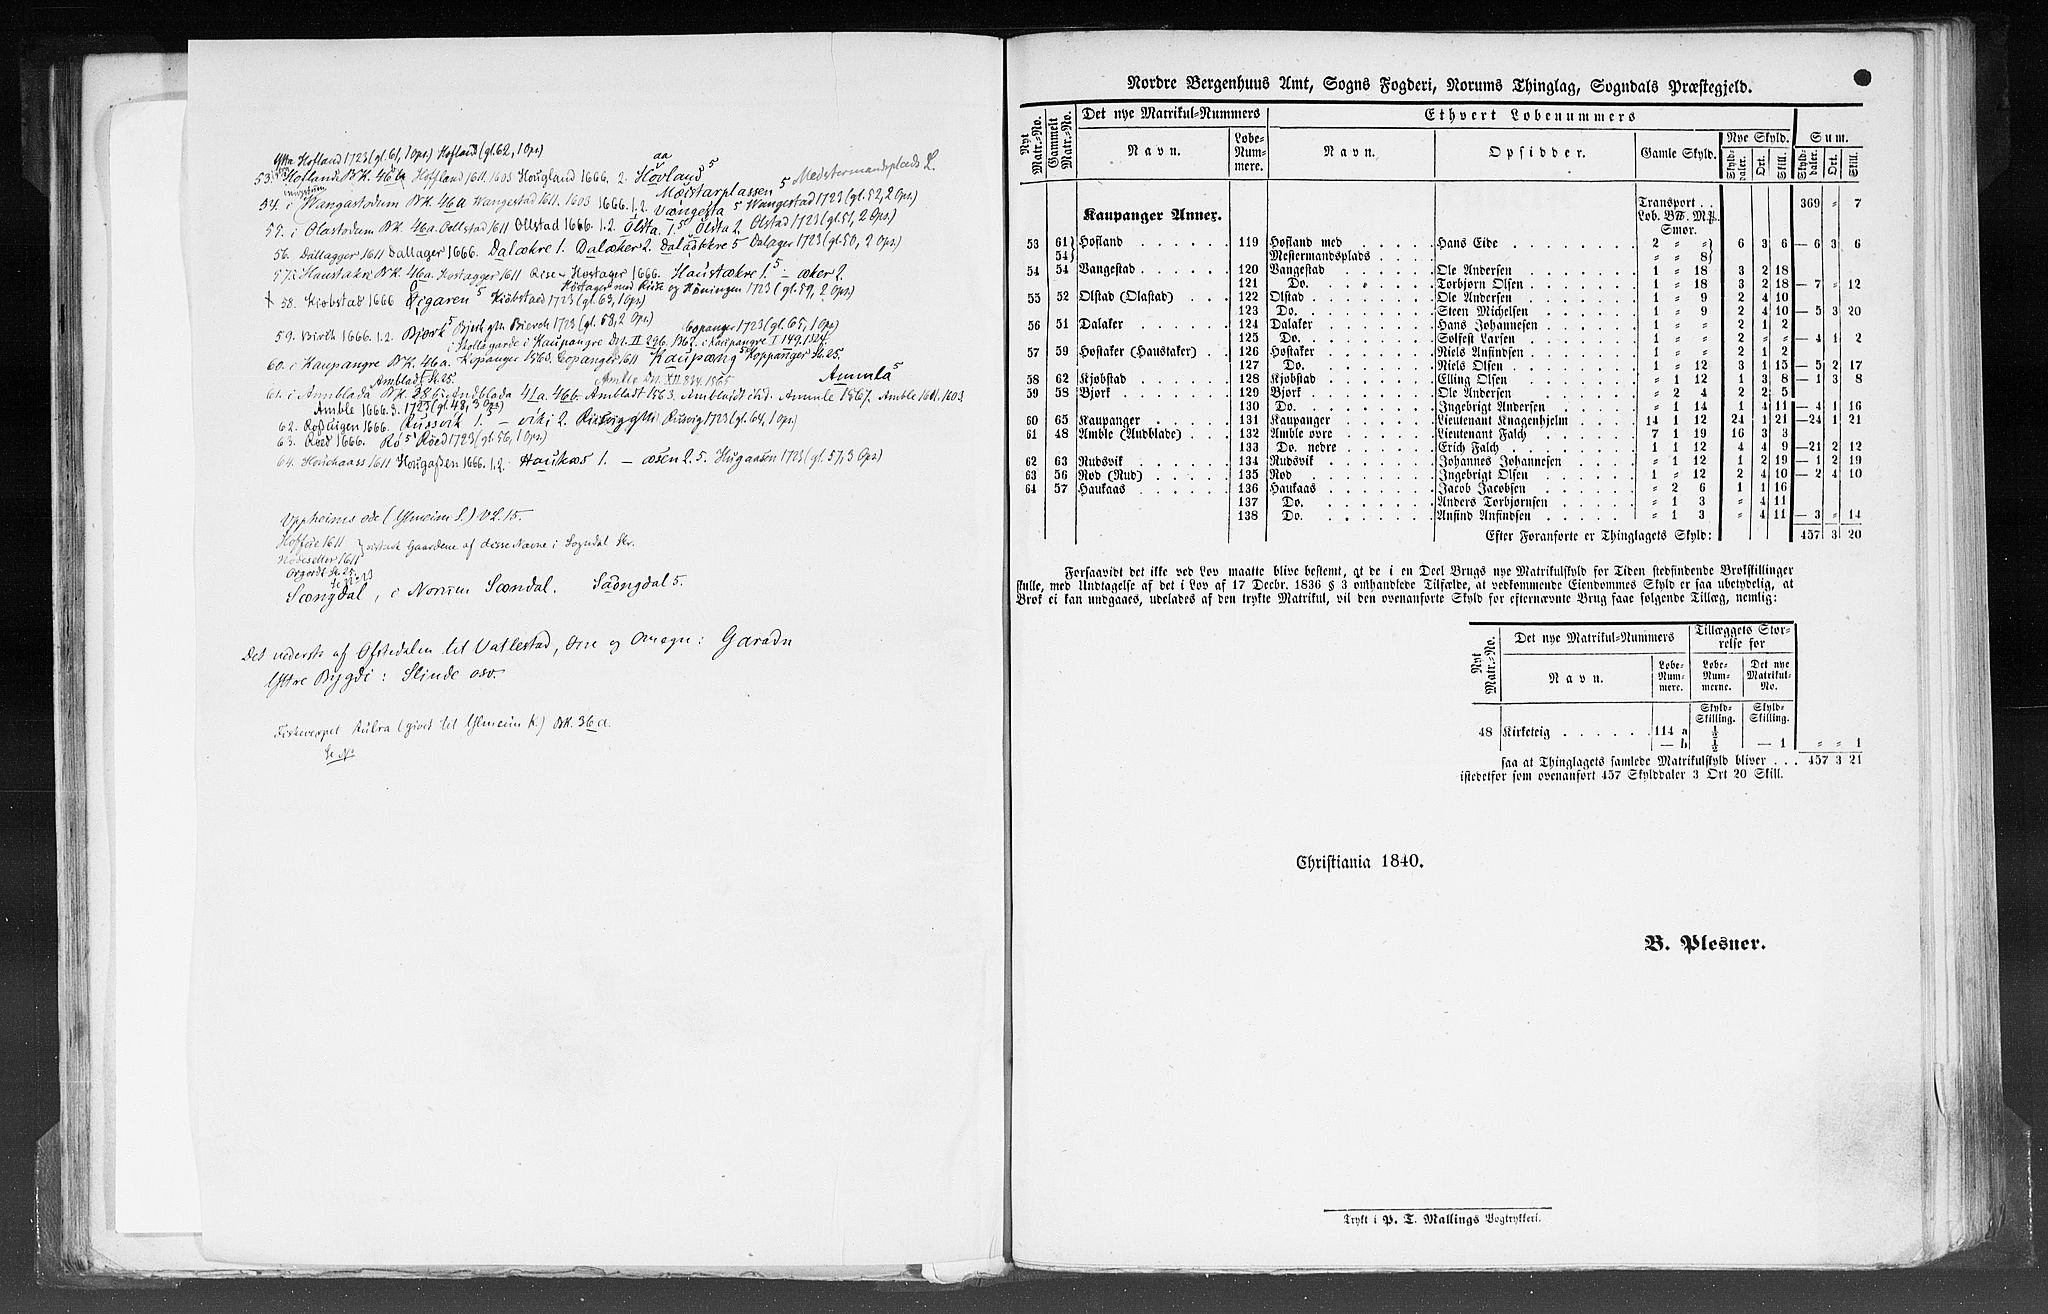 Ytta Hofland 1723 (gl. 61, 1 Ops.) Hofland (gl. 62, 1 Op.)
53. Hoflande BK. 46b Hoffland 1611. 1603 Hougland 1666. 2. Hovland 5 Medstermandsplads L.
Meistarplassen 5
54. i Wangastodum BK. 46a Wangestad 1611. 1603 1666. 1.2. Vangesta 5 Wangestad 1723 (gl. 52, 2 Ops.)
55. i Olastodum BK. 46a. Oellstad 1611 Ollstad 1666. 1.2. Olsta. 1. 5 Olsta 2. Olstad 1723 (gl. 51, 2 Ops.)
56. Dallagger 1611 Dallager 1666. Dalækre 1. Dalæker 2. 5 Dalager 1723 (gl. 50, 2 Ops.)
57. i Haustakre BK. 46a. Hostagger 1611 Hostager 1666. Haustækre 1. 5 – æker 2.
Hostager med Rise og Høningen 1723 (gl. 59, 2 Ops.)
58. Kiøbstad 1666 5 Kiøbstad 1723 (gl. 63, 1 Ops.)
59. Birch 1666. 1.2. Bjørk 5 Bierch 1723 (gl. 58, 2 Ops.) Copanger 1723 (gl. 65, 1 Op.)
i Kaupangre DN. II 296. 1367. i Kaupangre I 149. 1324.
60. i Kaupangre BK. 46a. Kopanger 1563. Copanger 1611 Kaupæng 5 Koppanger St. 25.
Amblad St. 25. Amble DN. XII 834. 1565 Ammla 5
61. i Amblada BK. 28b Andblada 41a. 46b. Ambladt 1563. Ambladt ibid. Ammle 1567. Amble 1611. 1603
Amble 1666. 3. 1723 (gl. 48, 3 Ops.)
62. 1666. Russvik 1. – viki 2. Rusvig 1723 (gl. 64, 1 Op.)
63. Roed 1666. Rø 5 Røed 1723 (gl. 56, 1 Op.)
64. Houchaass 1611 Hougassen 1666. 1.2. Haukås 1. – åsen 2. 5. Hugaasen 1723 (gl. 57, 3 Ops.)
Uppheims ode (Glmeim S.) VL. 15.
1611
Gaardene af disse Navne i Sogndal Skr.
1611
St. 25.
Sængdal, i Norum Sændal. Saangdal 5.
Det nederste af Ofstedalen til Vatlestad, om og Omegn: Garadn
Yttre Bygdi: Slinde osv.
Fiskeverpet Aulra (givet til Glmeim K.) BK. 36a.
Se No
Nordre Bergenhuus Amt, Sogns Fogderi, Norums Thinglag, Sogndals Præstegjeld.
Nyt Matr.-No. Gammelt Matr.-No. Det nye Matrikul-Nummers Ethvert Løbenummers
Navn. Løbe-Nummere. Navn. Opsidder. Gamle Skyld. Nye Skyld. Sum.
Skylddaler. Ort. Skill. Skylddaler. Ort. Skill.
Kaupanger Annex. Transport . . 369 " 7
Løb. B℔. M℔.
Smør.
53 61 Hofland 119 Hofland med Hans Eide 2 " " 6 3 6 — 6 3 6
54 Mestermandsplads " " 8
54 54 Vangestad 120 Vangestad Ole Andersen 1 " 18 3 2 18
121 Do. Torbjørn Olsen 1 " 18 3 2 18 — 7 " 12
55 52 Olstad (Olastad) 122 Olstad Ole Andersen 1 " 9 2 4 10
123 Do. Steen Michelsen 1 " 9 2 4 10 — 5 3 20
56 51 Dalaker 124 Dalaker Hans Johannesen 1 " " 2 1 2
125 Do. Solfest Larsen 1 " " 2 " " — 4 1 2
57 59 Hostaker (Haustaker) 126 Hostaker Niels Anfindsen 1 " " 2 1 2
127 Do. Niels Olsen 1 " 12 3 1 15 — 5 2 17
58 62 Kjøbstad 128 Kjøbstad Elling Olsen " 1 12 1 3 8 — 1 3 8
59 58 Bjørk 129 Bjørk Ole Andersen " 2 4 2 2 5
130 Do. Ingebrigt Andersen " 1 14 1 4 11 — 4 1 16
60 65 Kaupanger 131 Kaupanger Lieutenant Knagenhjelm 14 1 12 24 1 21 —24 1 21
61 48 Amble (Andblade) 132 Amble øvre Lieutenant Falch 7 1 19 16 3 3
133 Do. nedre Erich Falch 1 1 12 4 4 9 —21 2 12
62 63 Rudsvik 134 Rudsvik Johannes Johannesen " 1 12 1 2 19 — 1 2 19
63 56 Rød (Rud) 135 Rød Ingebrigt Olsen 1 " 12 2 4 10 — 2 4 10
64 57 Haukaas 136 Haukaas Jacob Jacobsen " 2 6 1 1 16
137 Do. Anders Torbjørnsen " 1 3 " 4 11
138 Do. Anfind Anfindsen " 1 3 " 4 11 — 3 " 14
Efter Foranførte er Thinglagets Skyld: 457 3 20
Forsaavidt det ikke ved Lov maatte blive bestemt, at de i en Deel Brugs nye Matrikulskyld for Tiden stedfindende Brøkskillinger
skulle, med Undtagelse af det i Lov af 17 Decbr. 1836 § 3 omhandlede Tilfælde, at vedkommende Eiendommes Skyld er saa ubetydelig, at
Brøk ei kan undgaaes, udelades af den trykte Matrikul, vil den ovenanførte Skyld for efternævnte Brug faae følgende Tillæg, nemlig:
Nyt Matr.-No. Det nye Matrikul-Nummers Tillæggets Størrelse for
Navn. Løbe-Nummere. Løbe-Nummerne. Det nye Matrikul-No.
Skyld-Skilling. Skyld-Skilling.
48 Kirketeig 114 a ½
— b ½ — 1 " " 1
saa at Thinglagets samlede Matrikulskyld bliver . . . 457 3 21
istedetfor som ovenanført 457 Skylddaler 3 Ort 20 Skill.
Christiania 1840.
B. Plesner.
Trykt i P. T. Mallings Bogtrykkeri.